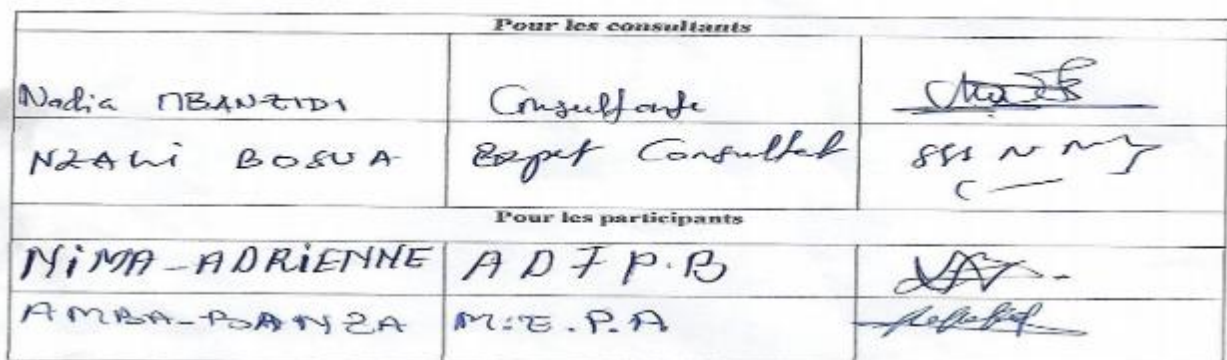 Pour les consultants
Nadia MBANZIDI Consultante
NZALI BOSUA Expert Consultat
Pour les participants
NiMA-ADRiENNE A D F P.B
AMBA-BANZA M.E.P.A